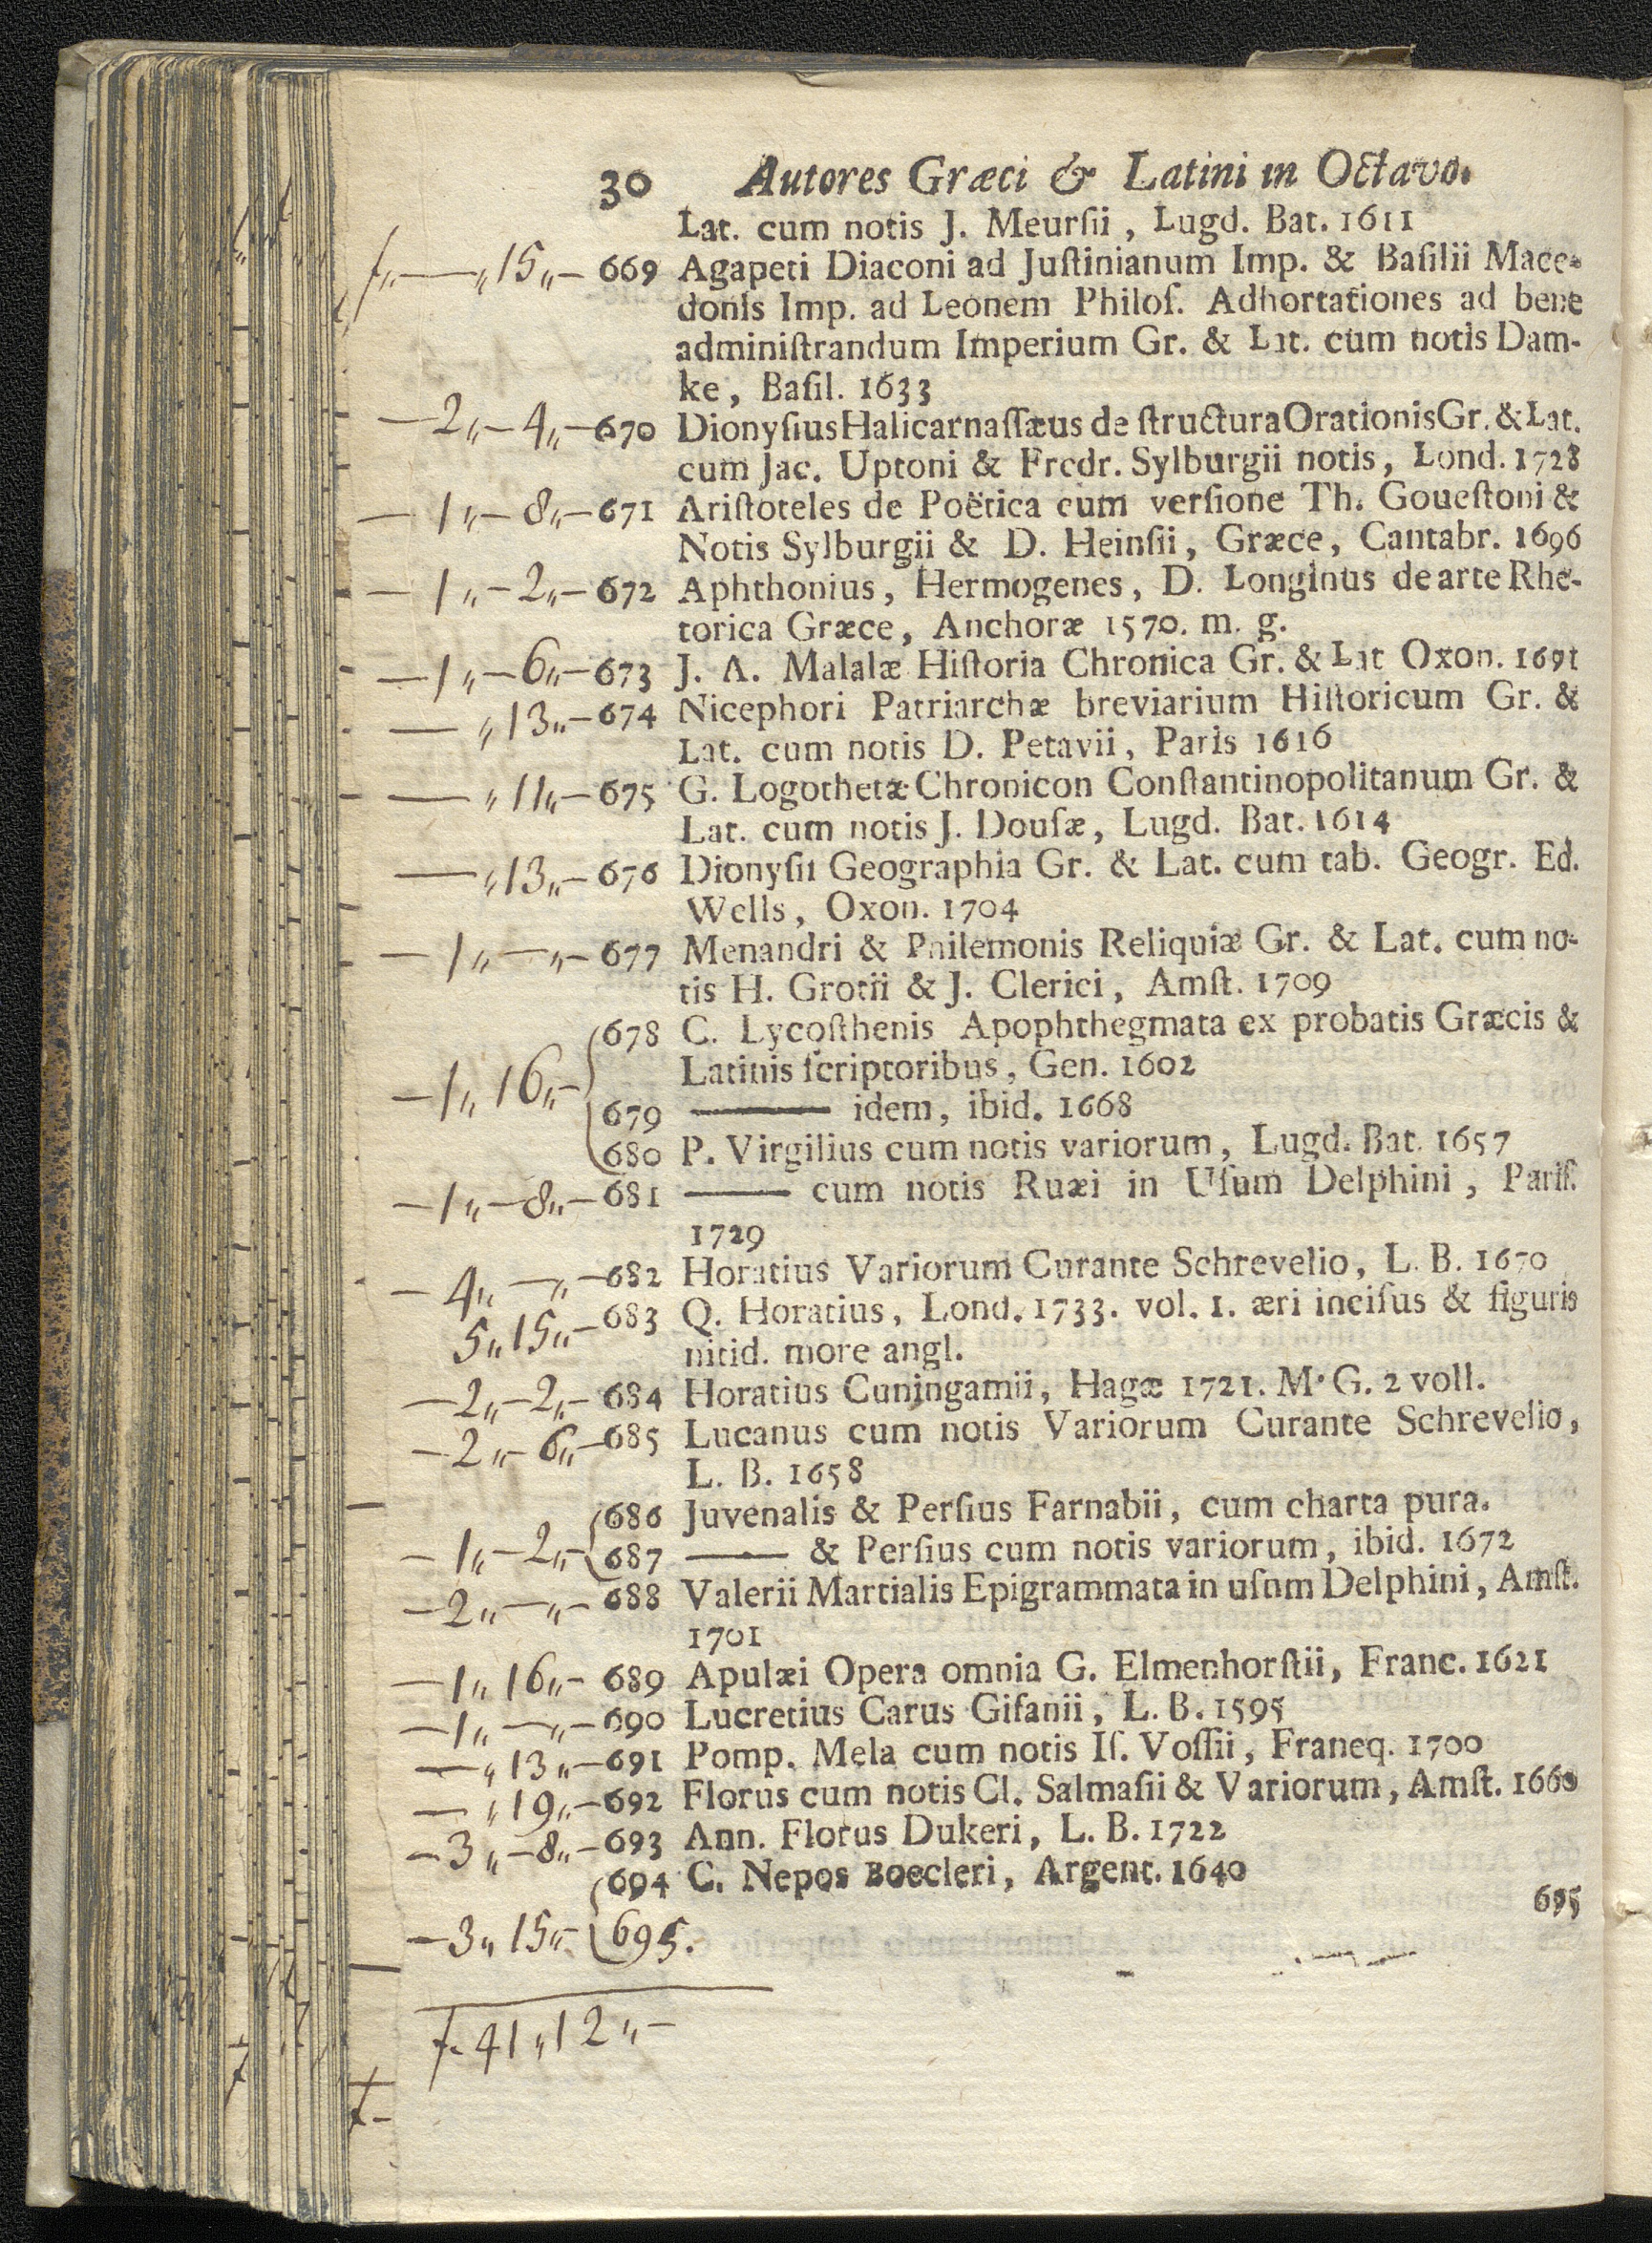 30 Autores Græci & Latini in Octavo.
Lat. cum notis J. Meurſii, Lugd. Bat. 1611
f„—„15„— 669 Agapeti Diaconi ad Juſtinianum Imp. & Baſilii Mace-
donis Imp. ad Leonem Philoſ. Adhortationes ad bene
adminiſtrandum Imperium Gr. & Lat. cum notis Dam-
ke, Baſil. 1633
—2„—4„— 670 Dionyſius Halicarnaſſæus de ſtructura Orationis Gr. & Lat.
cum Jac. Uptoni & Fredr. Sylburgii notis, Lond. 1728
—1„—8„— 671 Ariſtoteles de Poëtica cum verſione Th. Goueſtoni &
Notis Sylburgii & D. Heinſii, Græce, Cantabr. 1696
—1„—2„— 672 Aphthonius, Hermogenes, D. Longinus de arte Rhe-
torica Græce, Anchoræ 1570. m. g.
—1„—6„— 673 J. A. Malalæ Hiſtoria Chronica Gr. & Lat Oxon. 1691
—„13„— 674 Nicephori Patriarchæ breviarium Hiſtoricum Gr. &
Lat. cum notis D. Petavii, Paris 1616
—„11„— 675 G. Logothetæ Chronicon Conſtantinopolitanum Gr. &
Lat. cum notis J. Douſæ, Lugd. Bat. 1614
—„13„— 676 Dionyſii Geographia Gr. & Lat. cum tab. Geogr. Ed.
Wells, Oxon. 1704
—1„—„— 677 Menandri & Philemonis Reliquiæ Gr. & Lat. cum no-
tis H. Grotii & J. Clerici, Amſt. 1709
678 C. Lycoſthenis Apophthegmata ex probatis Græcis &
Latinis ſcriptoribus, Gen. 1602
—1„16„— 679 —— idem, ibid. 1668
680 P. Virgilius cum notis variorum, Lugd. Bat. 1657
—1„—8„— 681 —— cum notis Ruæi in Uſum Delphini, Pariſ.
1729
—4„—„— 682 Horatius Variorum Curante Schrevelio, L. B. 1670
5„15„— 683 Q. Horatius, Lond. 1733. vol. 1. æri inciſus & figuris
nitid. more angl.
—2„—2„— 684 Horatius Cuningamii, Hagæ 1721. M. G. 2 voll.
—2„—6„— 685 Lucanus cum notis Variorum Curante Schrevelio,
L. B. 1658
686 Juvenalis & Perſius Farnabii, cum charta pura.
—1„—2„— 687 —— & Perſius cum notis variorum, ibid. 1672
—2„—„— 688 Valerii Martialis Epigrammata in uſum Delphini, Amſt.
1701
—1„16„— 689 Apulæi Opera omnia G. Elmenhorſtii, Franc. 1621
—1„—„— 690 Lucretius Carus Gifanii, L. B. 1595
—„13„— 691 Pomp. Mela cum notis Iſ. Voſſii, Franeq. 1700
—„19„— 692 Florus cum notis Cl. Salmaſii & Variorum, Amſt. 1660
—3„—8„— 693 Ann. Florus Dukeri, L. B. 1722
694 C. Nepos Boecleri, Argent. 1640
695
—3„15„— 695.
f. 41„12„—